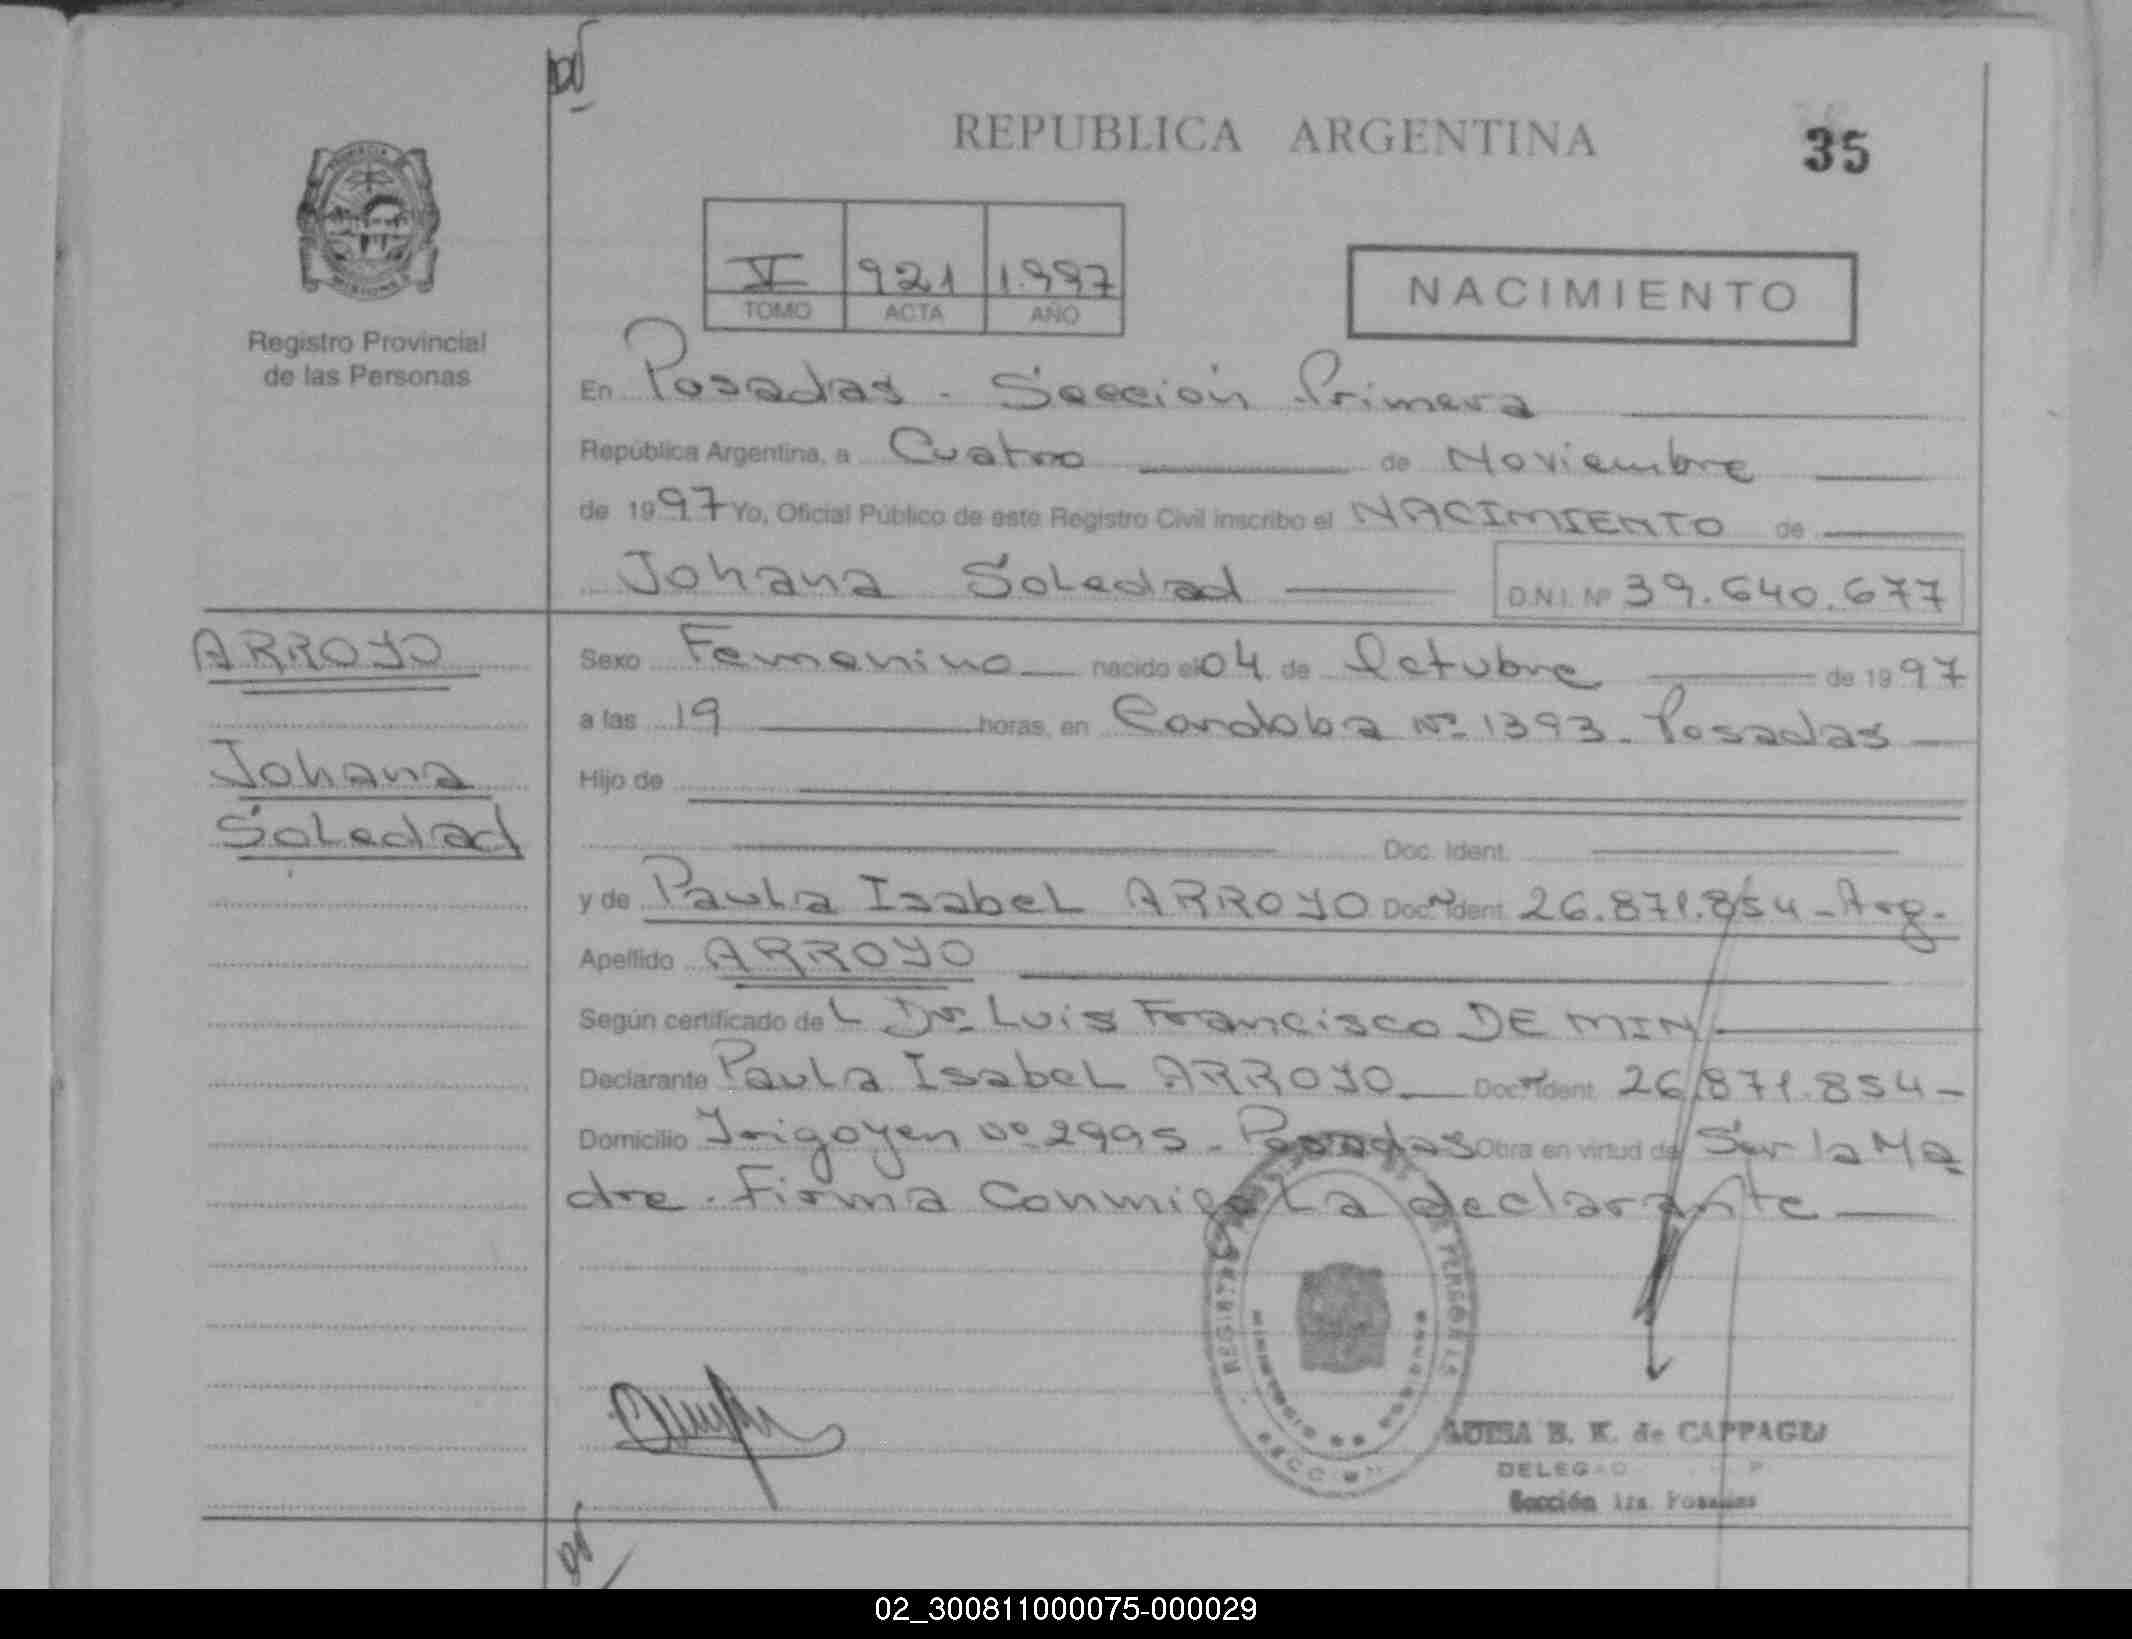 REPUBLICA ARGENTINA
35
V 921 1.997
TOMO ACTA AÑO
NACIMIENTO
Registro Provincial
de las Personas
En Posadas - Sección Primera
República Argentina, a Cuatro de Noviembre
de 1997 Yo, Oficial Público de este Registro Civil inscribo el NACIMIENTO de
Johana Soledad D.N.I. Nº 39.640.677
ARROYO
Johana
Soledad
Sexo Femenino nacido el 04 de Octubre de 1997
a las 19 horas, en Cordoba Nº 1393 - Posadas
Hijo de
Doc. Ident.
y de Paula Isabel ARROYO Doc. Ident. 26.871.854 - Arg.
Apellido ARROYO
Según certificado del Dr. Luis Francisco DE MIN
Declarante Paula Isabel ARROYO Doc. Ident. 26.871.854 -
Domicilio Irigoyen nº 2995 - Posadas Obra en virtud de Ser la Ma
dre. Firma Conmigo La declarante
LUISA B. K. de CAPPAGLI
Sección 1ra. Posadas
02_300811000075-000029